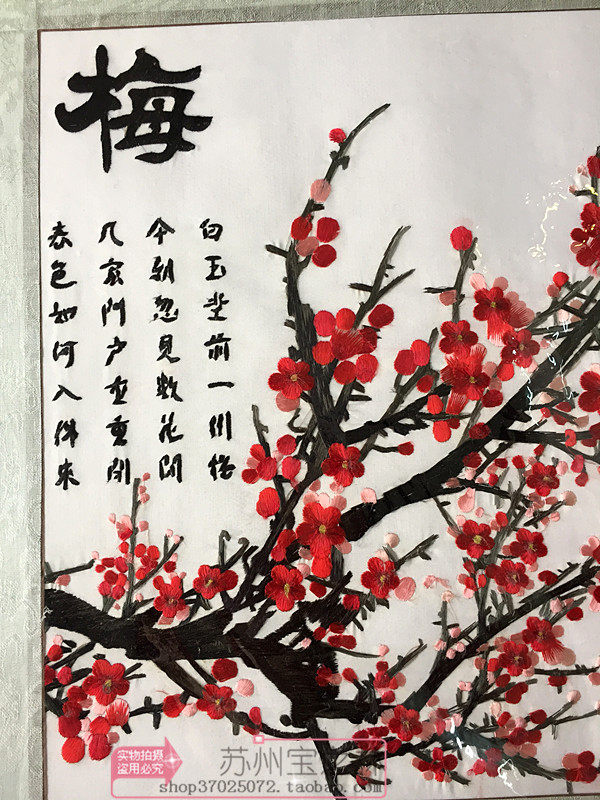 梅
白玉堂前一树梅
今朝忽见数花開
几家門户重重閉
春色如何入得来
实物拍摄
盗用必究
苏州宝
shop37025072.taobao.com